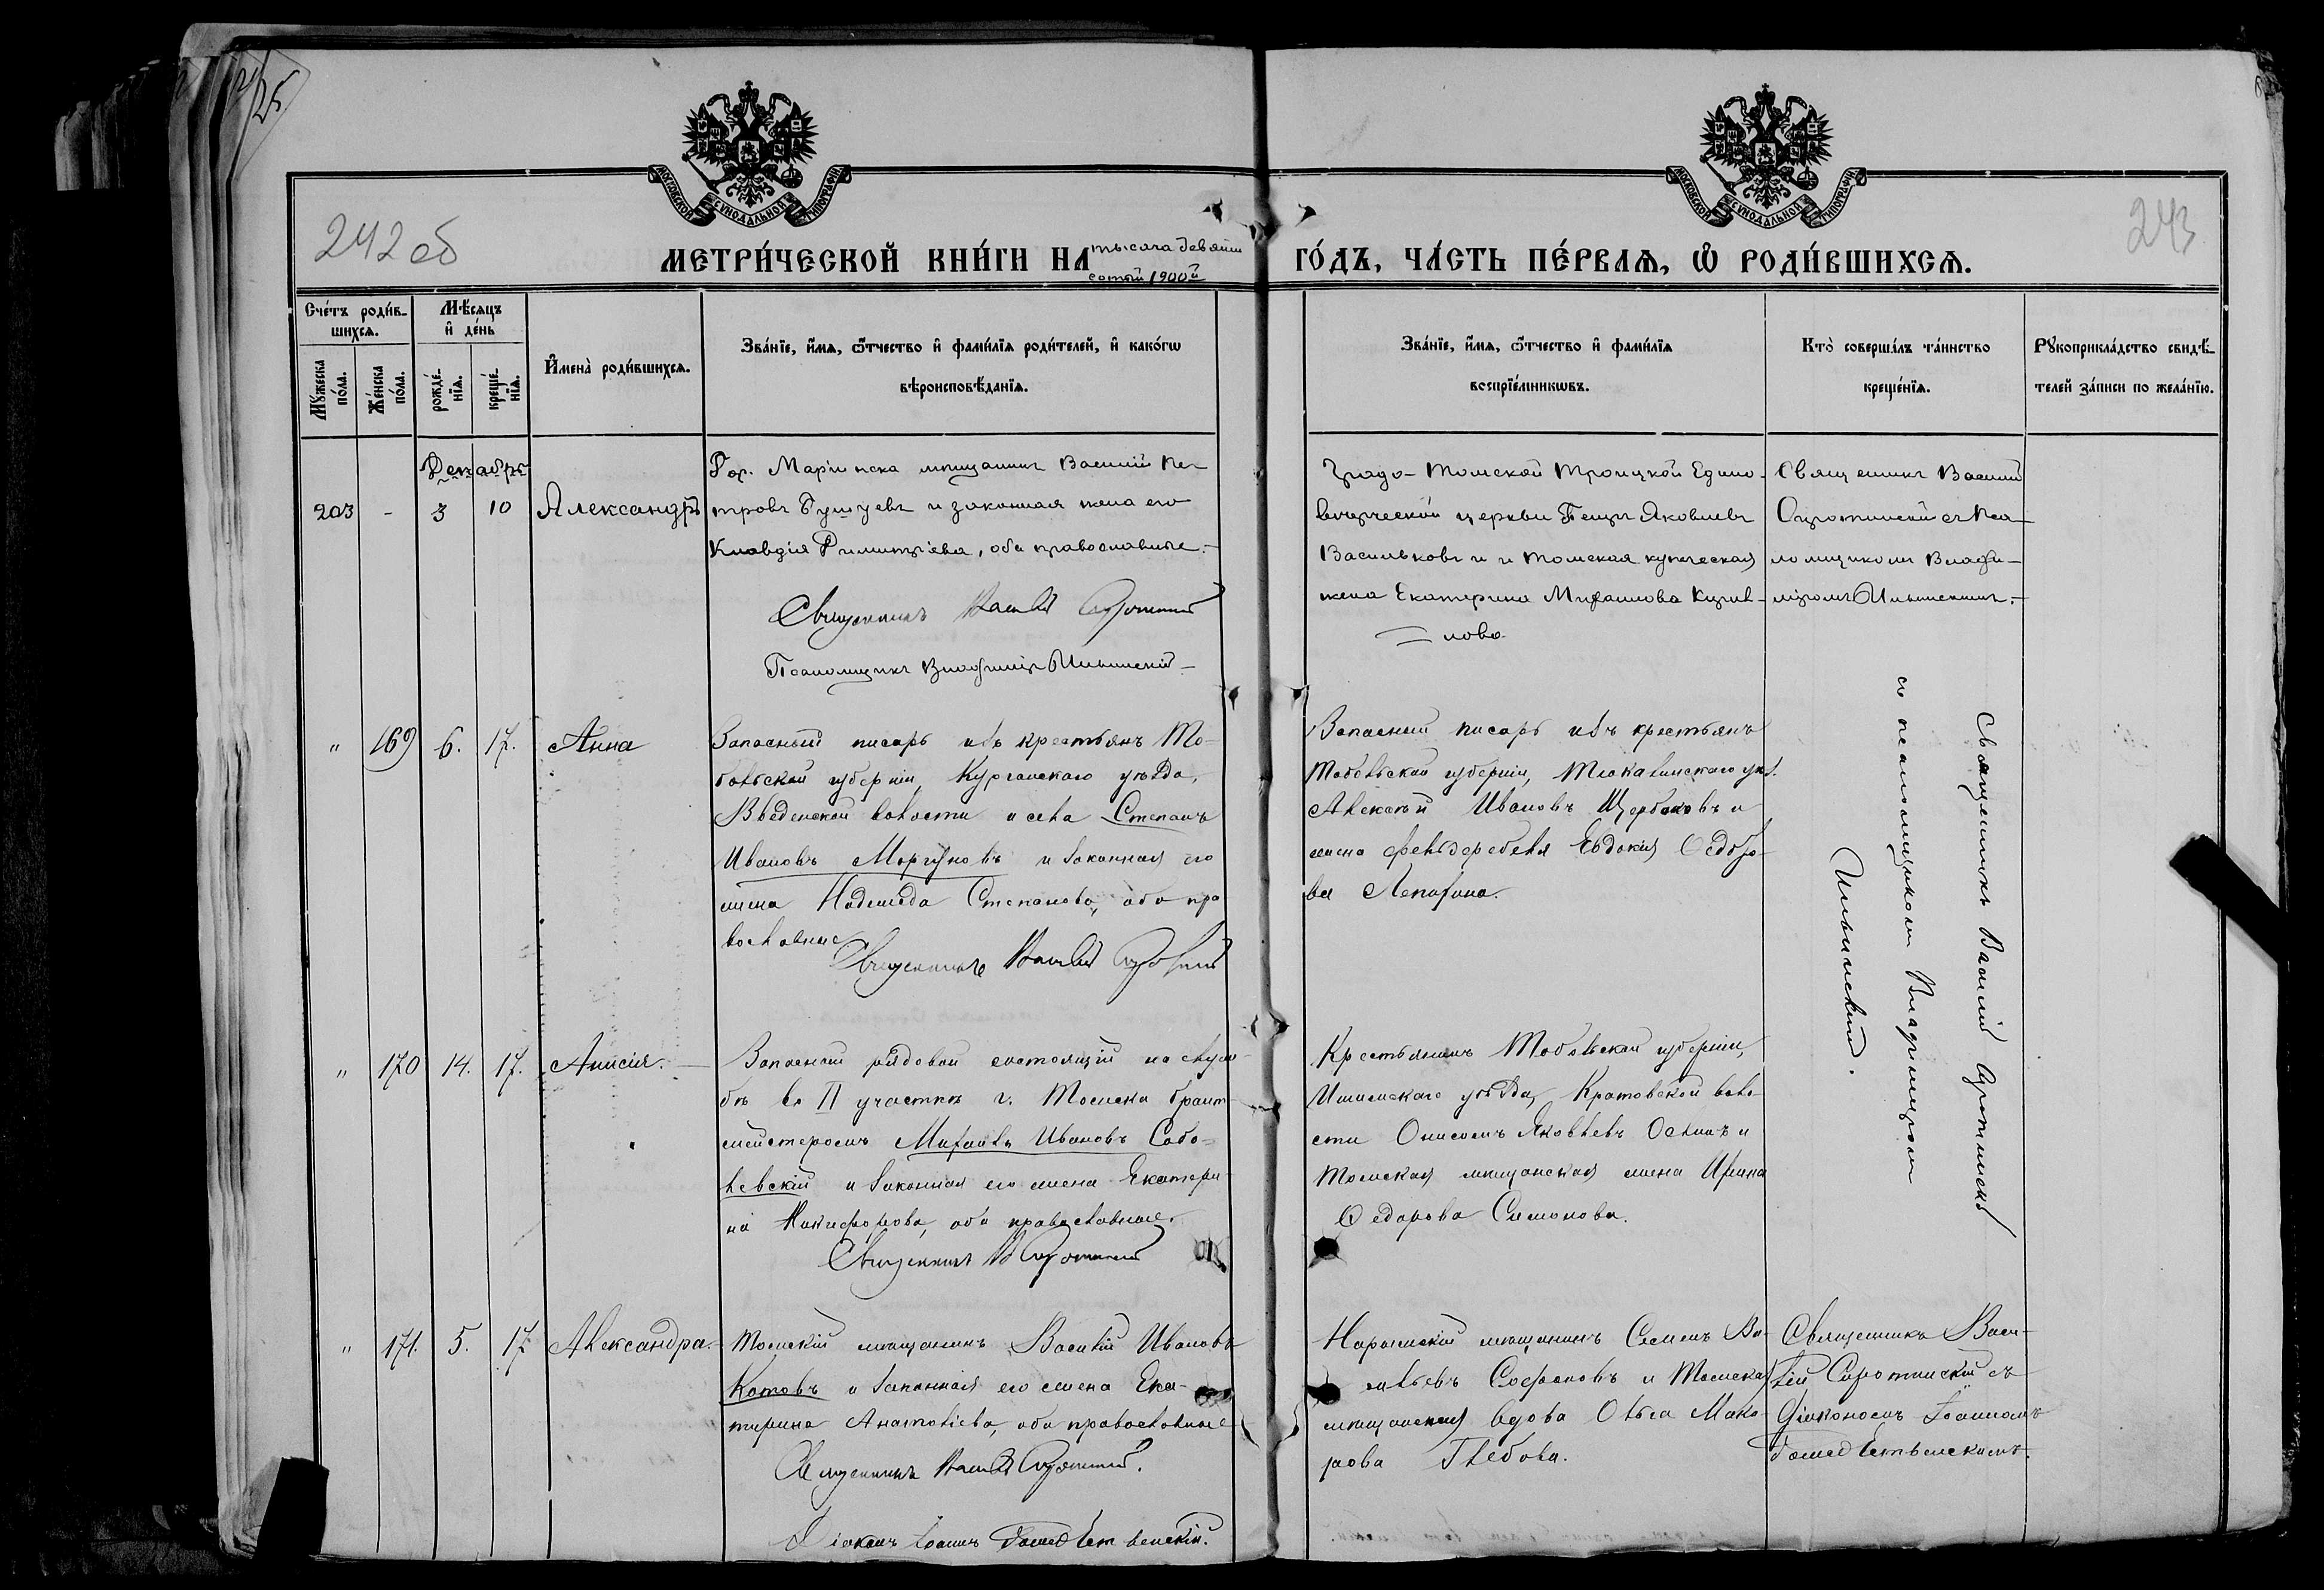 242 об
243
МОСКОВСКОЙ СѴНОДАЛЬНОЙ ТИПОГРАФІИ
МОСКОВСКОЙ СѴНОДАЛЬНОЙ ТИПОГРАФІИ
МЕТРИ́ЧЕСКОЙ КНИ́ГИ НА тысяча девять сотый 1900й ГО́ДЪ, ЧА́СТЬ ПЕ́РВАѦ, Ѡ РОДИ́ВШИХСѦ.
Сче́тъ роди́в-
шихсѧ.
Мꙋ́жеска по́ла.
Же́нска по́ла.
Мѣ́сѧцъ
и҆ де́нь
рожде́-
нїѧ.
креще́-
нїѧ.
И҆мена̀ роди́вшихсѧ.
Зва́нїе, и҆́мѧ, ѻ҆́тчество и҆ фами́лїѧ роди́телей, и҆ како́гѡ
вѣроисповѣ́данїѧ.
Зва́нїе, и҆́мѧ, ѻ҆́тчество и҆ фами́лїѧ
воспрїе́мникѡвъ.
Кто̀ соверша́лъ та́инство
креще́нїѧ.
Рꙋкоприкла́дство свидѣ́-
телей за́писи по жела́нїю.
Декабрь
203
-
3
10
Александръ
Гор. Маріинска мѣщанинъ Василій Пе-
тровъ Бушуевъ и законная жена его
Клавдія Димитріева, оба православные.
Священникъ Василій Сиротинскій
Псаломщикъ Владиміръ Ильинскій
Градо-Томской Троицкой Едино-
верческой церкви Яковлевъ
Васильковъ и Томская купеческая
жена Екатерина Михаилова
лова
Священникъ Василій
Сиротинскій съ Пса-
ломщикомъ Влади-
міромъ Ильинскимъ.
"
169
6.
17.
Анна
Запасный писарь изъ крестьянъ То-
больской губерніи, Курганскаго уѣзда,
Введенской волости и села Степанъ
Ивановъ Моргуновъ и законная его
жена Надежда Степанова, оба пра
вославные
Священникъ Василій Сиротинскій
Запасный писарь изъ крестьянъ
Тобольской губерніи, Тюкалинскаго уѣз.
Алексѣй Ивановъ Щербаковъ и
жена фельдфебеля Евдокія Ѳедоро-
ва Лепихина.
Священникъ Василій Сиротинскій
съ псаломщикомъ Владиміромъ
Ильинскимъ.
"
170
14.
17.
Анисія.
Запасный рядовой состоящій на служ-
бѣ во II участкѣ г. Томска брант-
мейстеромъ Михаилъ Ивановъ Собо-
левскій и законная его жена Екатери-
на Никифорова, оба православные.
Священникъ В Сиротинскій
Крестьянинъ Тобольской губерніи,
Ишимскаго уѣзда, Кротовской воло-
сти Онисимъ Яковлевъ и
Томская мѣщанская жена Ирина
Ѳедорова Симонова.
"
171.
5.
17
Александра.
Томскій мѣщанинъ Василій Ивановъ
Котовъ и законная его жена Ека-
терина Анатоліева, оба православные
Священникъ Василій Сиротинскій.
Діаконъ Іоаннъ Рождественскій.
Нарымскій мѣщанинъ Семенъ Ва-
сильевъ Софроновъ и Томская
мѣщанская вдова Ольга Мака-
рова Глебова.
Священникъ Васи-
лій Сиротинскій съ
Діакономъ Іоанномъ
Рождественскимъ.